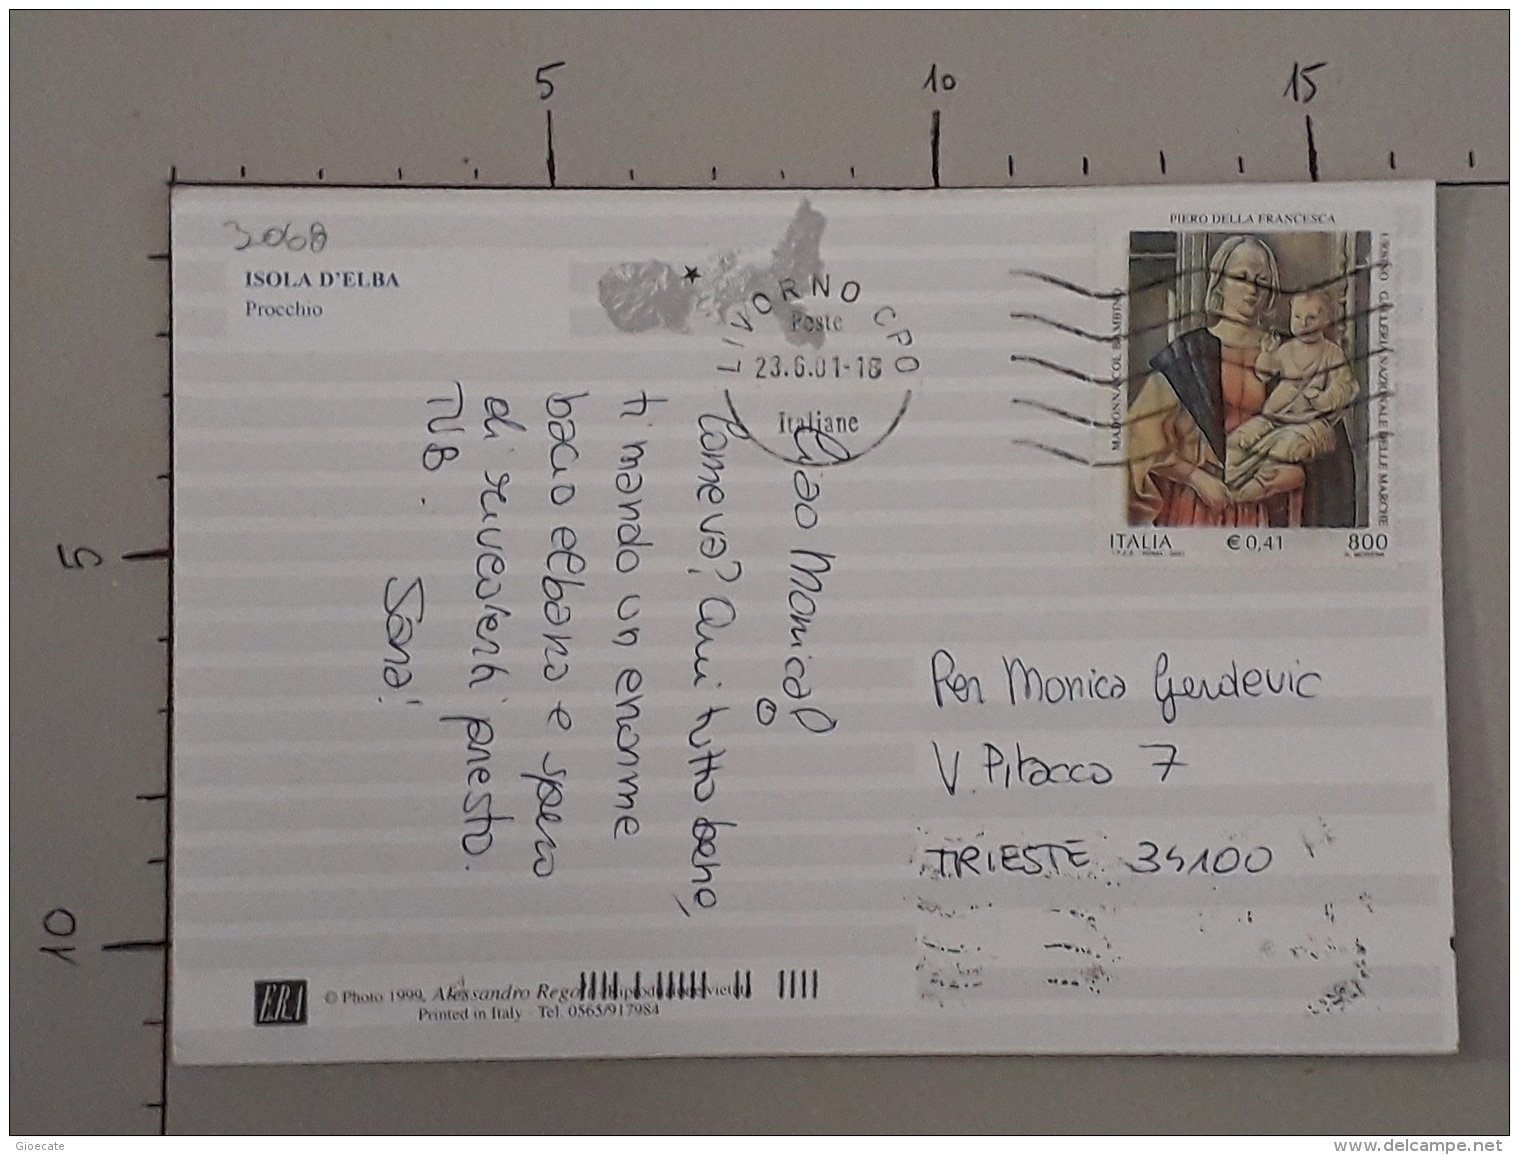 5
10
15
5
10
3068
ISOLA D'ELBA
Procchio
LIVORNO CPO
Poste
23.6.01-18
Italiane
PIERO DELLA FRANCESCA
MADONNA COL BAMBINO
URBINO GALLERIA NAZIONALE DELLE MARCHE
ITALIA € 0,41 800
Ciao Monica!
Come va? Qui tutto bene,
ti mando un enorme
bacio elbano e spero
di rivederti presto.
TVB.
Sara!
Per Monica Gerdevic
V. Pitacco 7
TRIESTE 34100
ERI
© Photo 1999, Alessandro Regoli
Printed in Italy - Tel. 0565/917984
Gioecate
www.delcampe.net